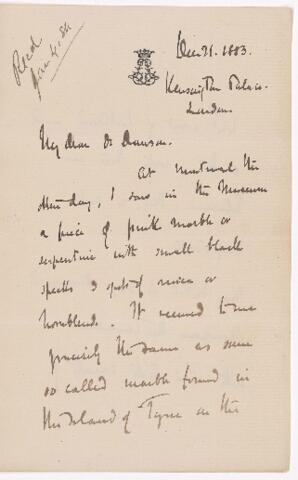 Recd
Jan 4. 84
Dec 21. 1883.
Kensington Palace.
London.
My dear Dr Dawson.
At Montreal the
other day, I saw in the Museum
a piece of pink marble or
serpentine with small black
specks & spots of mica or
hornblende. It seemed to me
precisely the same as some
so called marble found in
the Island of Tyree on the